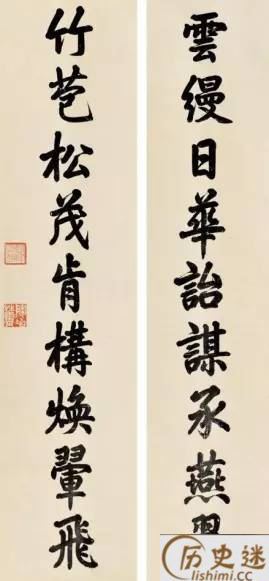 雲縵日華詒謀承燕翼
竹苞松茂肯構煥翬飛
历史迷
lishimi.cc